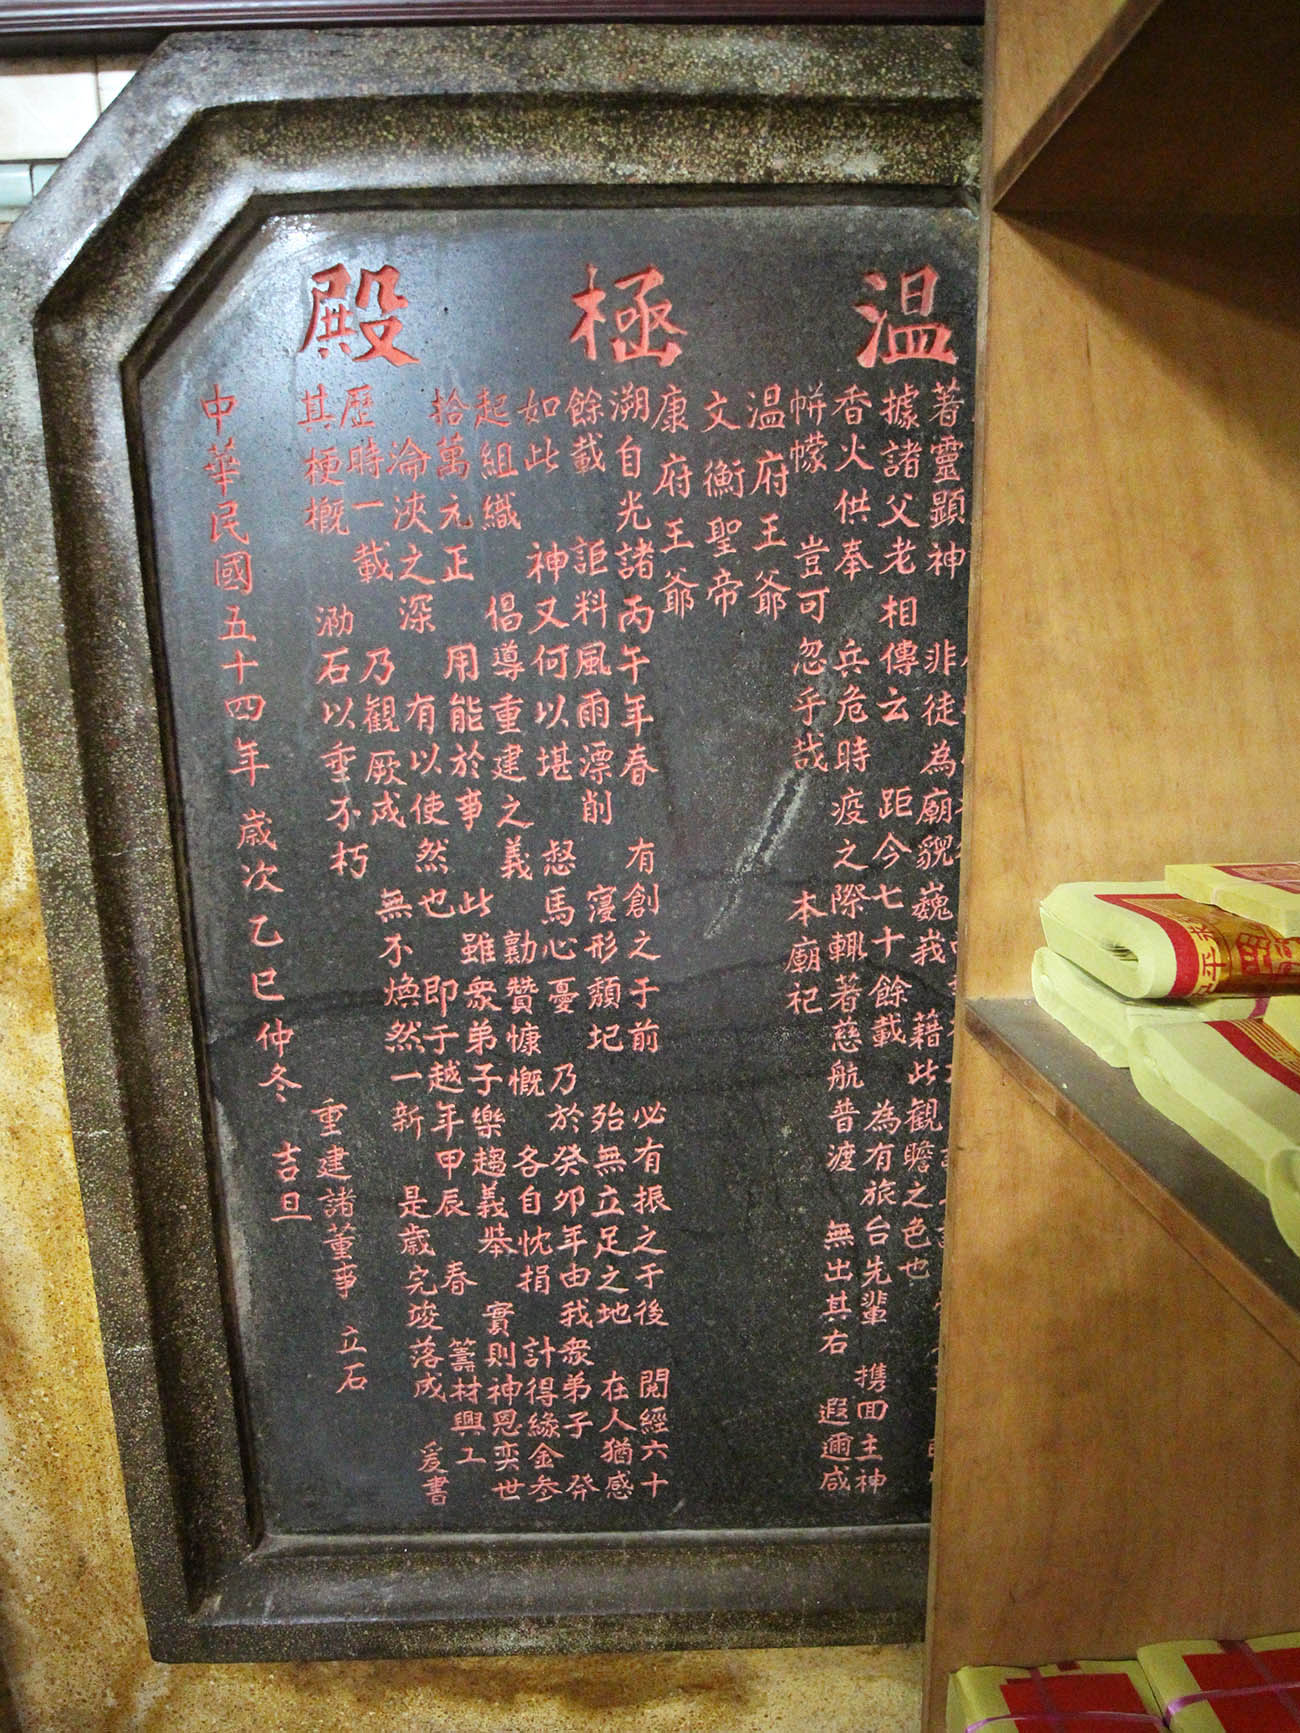 溫極殿
著靈顯神 非徒為廟貌巍峩 藉此觀瞻之色也
據諸父老相傳云 距今七十餘載 為有旅台先輩 携回主神
香火供奉 兵危時疫之際輒著慈航普渡 無出其右 遐邇咸
帡幪 豈可忽乎哉 本廟祀
溫府王爺
文衡聖帝
康府王爺
溯自光諸丙午年春 有創之于前 必有振之于後 閱經六十
餘載 詎料風雨漂削 寖形頽圮 殆無立足之地 在人猶感
如此 神又何以堪 惄焉心憂 乃於癸卯年由我衆弟子 發
起組織 倡導重建之義 勷贊慷慨 各自忱捐 計得緣金叁
拾萬元正 用能於事 此雖衆弟子樂趨義舉 實則神恩奕世
淪浹之深 有以使然也 即于越年甲辰 春 籌材興工
歷時一載 乃觀厥成 無不煥然一新 是歲完竣落成 爰書
其梗概 泐石以垂不朽
重建諸董事 立石
中華民國五十四年 歲次乙巳仲冬 吉旦